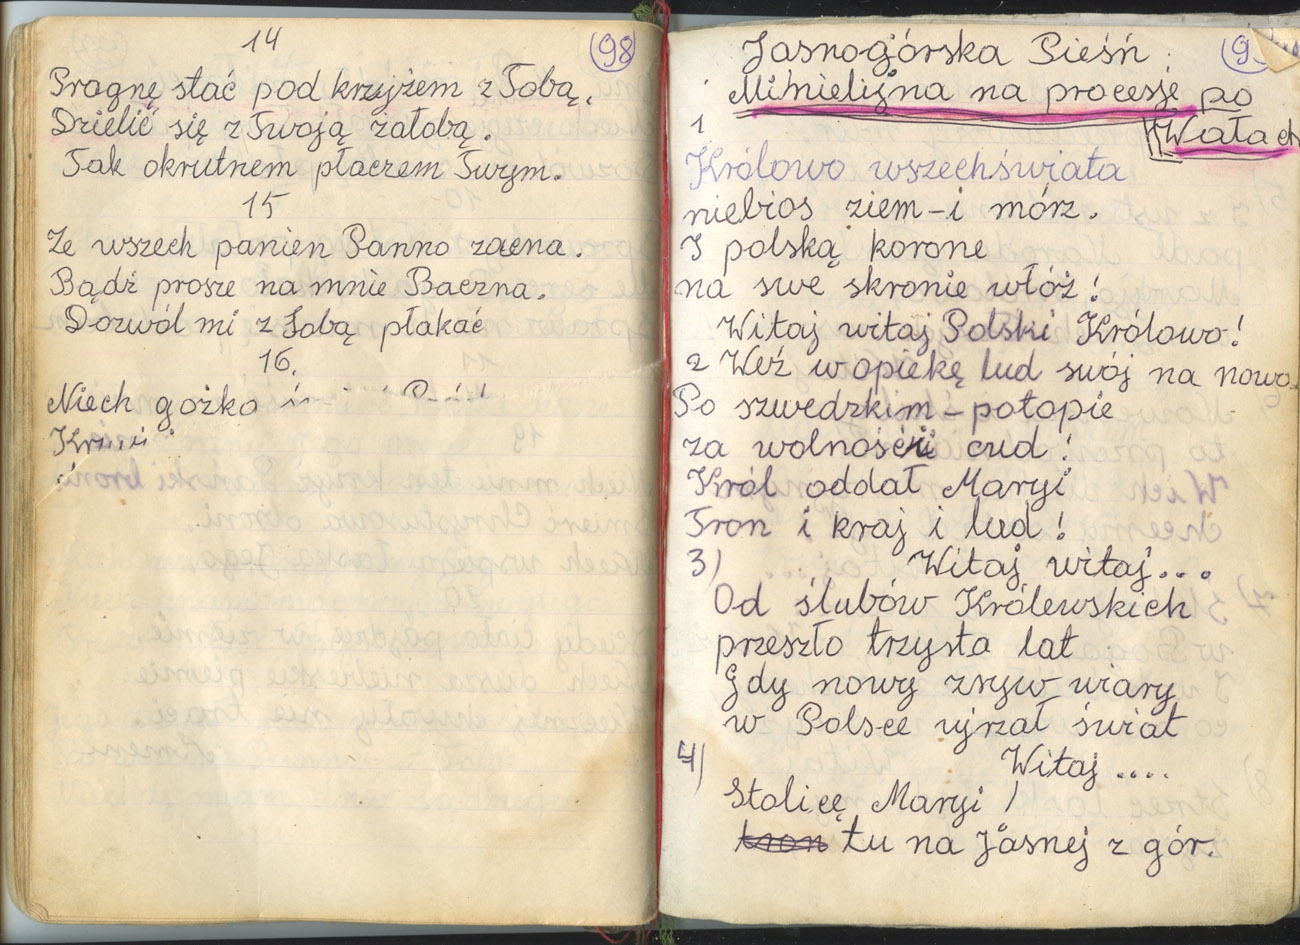 14
(98)
Pragnę stać pod krzyżem z Tobą.
Dzielić się z Twoją żałobą.
Tak okrutnem płaczem Twym.
15
Ze wszech panien Panno zacna.
Bądź prosze na mnie Baczna.
Dozwól mi z Tobą płakać
16.
Niech gożko
Jasnogórska Pieśń
na procesje po
Wałach
1
Królowo wszechświata
niebios ziem-i mórz.
I polską korone
na swe skronie włóż!
Witaj witaj Polski Królowo!
2 Weź w opiekę lud swój na nowo.
Po szwedzkim-potopie
za wolności cud!
Król oddał Maryi
Tron i kraj i lud!
3) Witaj witaj...
Od ślubów Królewskich
przeszło trzysta lat
Gdy nowy zryw wiary
w Polsce ujrzał świat
4) Witaj....
Stolicę Maryi
tron tu na Jasnej z gór.